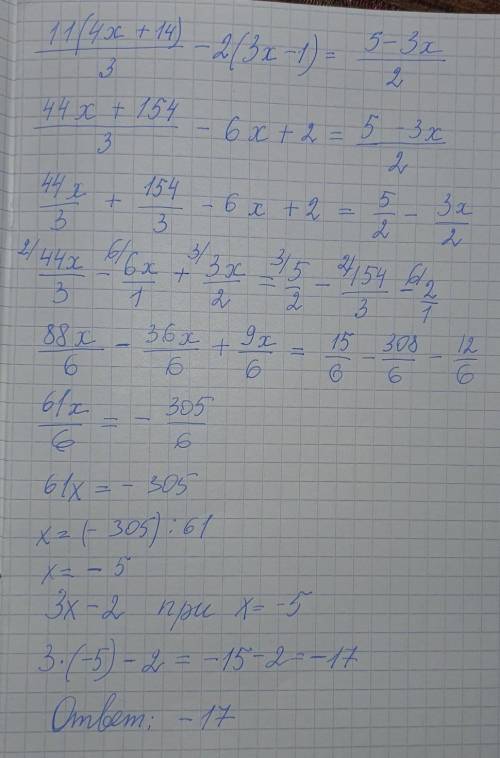 11(4x + 14)/3 - 2(3x - 1) = (5 - 3x)/2
(44x + 154)/3 - 6x + 2 = (5 - 3x)/2
44x/3 + 154/3 - 6x + 2 = 5/2 - 3x/2
2/ 44x/3 - 6/ 6x/1 + 3/ 3x/2 = 3/ 5/2 - 2/ 154/3 - 6/ 2/1
88x/6 - 36x/6 + 9x/6 = 15/6 - 308/6 - 12/6
61x/6 = - 305/6
61x = - 305
x = (- 305) : 61
x = - 5
3x - 2 при x = -5
3·(-5) - 2 = -15 - 2 = -17
Ответ: -17